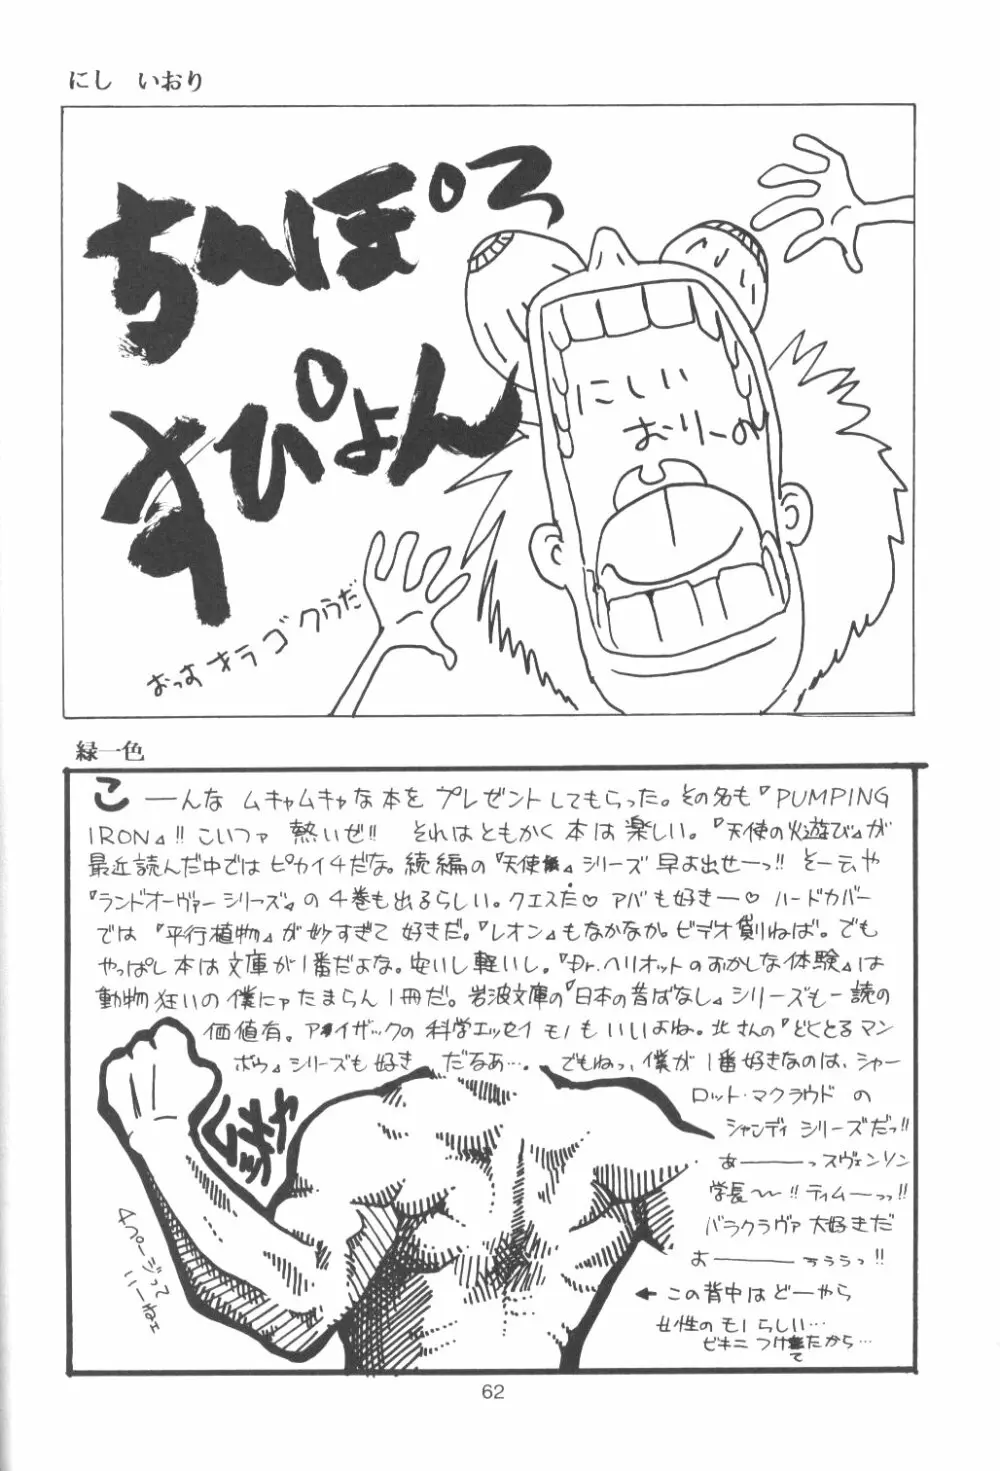 にし　いおり
ちんぽろ
すぴょん
にしい
おりーの
おっす オラ ゴクウだ
緑一色
こーーんな ムキャムキャな本を プレゼントしてもらった。その名も『PUMPING
IRON』!! こいつァ 熱いぜ!! それはともかく 本は楽しい。『天使の火遊び』が
最近読んだ中では ピカイチだな。続編の『天使』シリーズ 早よ出せーっ!! そーいや
『ランドオーヴァーシリーズ』の 4巻も出るらしい。クエスだ♡ アバも好きー♡ ハードカバー
では『平行植物』が妙すぎて 好きだ。『レオン』もなかなか。ビデオ借りねば。でも
やっぱし本は文庫が1番だよな。安いし軽いし。『Dr.ヘリオットのおかしな体験』は
動物狂いの僕にァたまらん1冊だ。岩波文庫の『日本の昔ばなし』シリーズも一読の
価値有。アイザックの 科学エッセイモノもいいよね。北さんの『どくとるマン
ボウ』シリーズも好き だなあ…。でもねっ、僕が1番好きなのは、シャー
ロット・マクラウド の
シャンディ シリーズだっ!!
あーーーっスヴェンソン
学長〜〜!! ティムーーっっ!!
バラクラヴァ 大好きだ
おーーーぅぅぅっ!!
← この背中はどーやら
女性のモノらしい…
ビキニ つけてたから…
4ページって
いーねェ
62